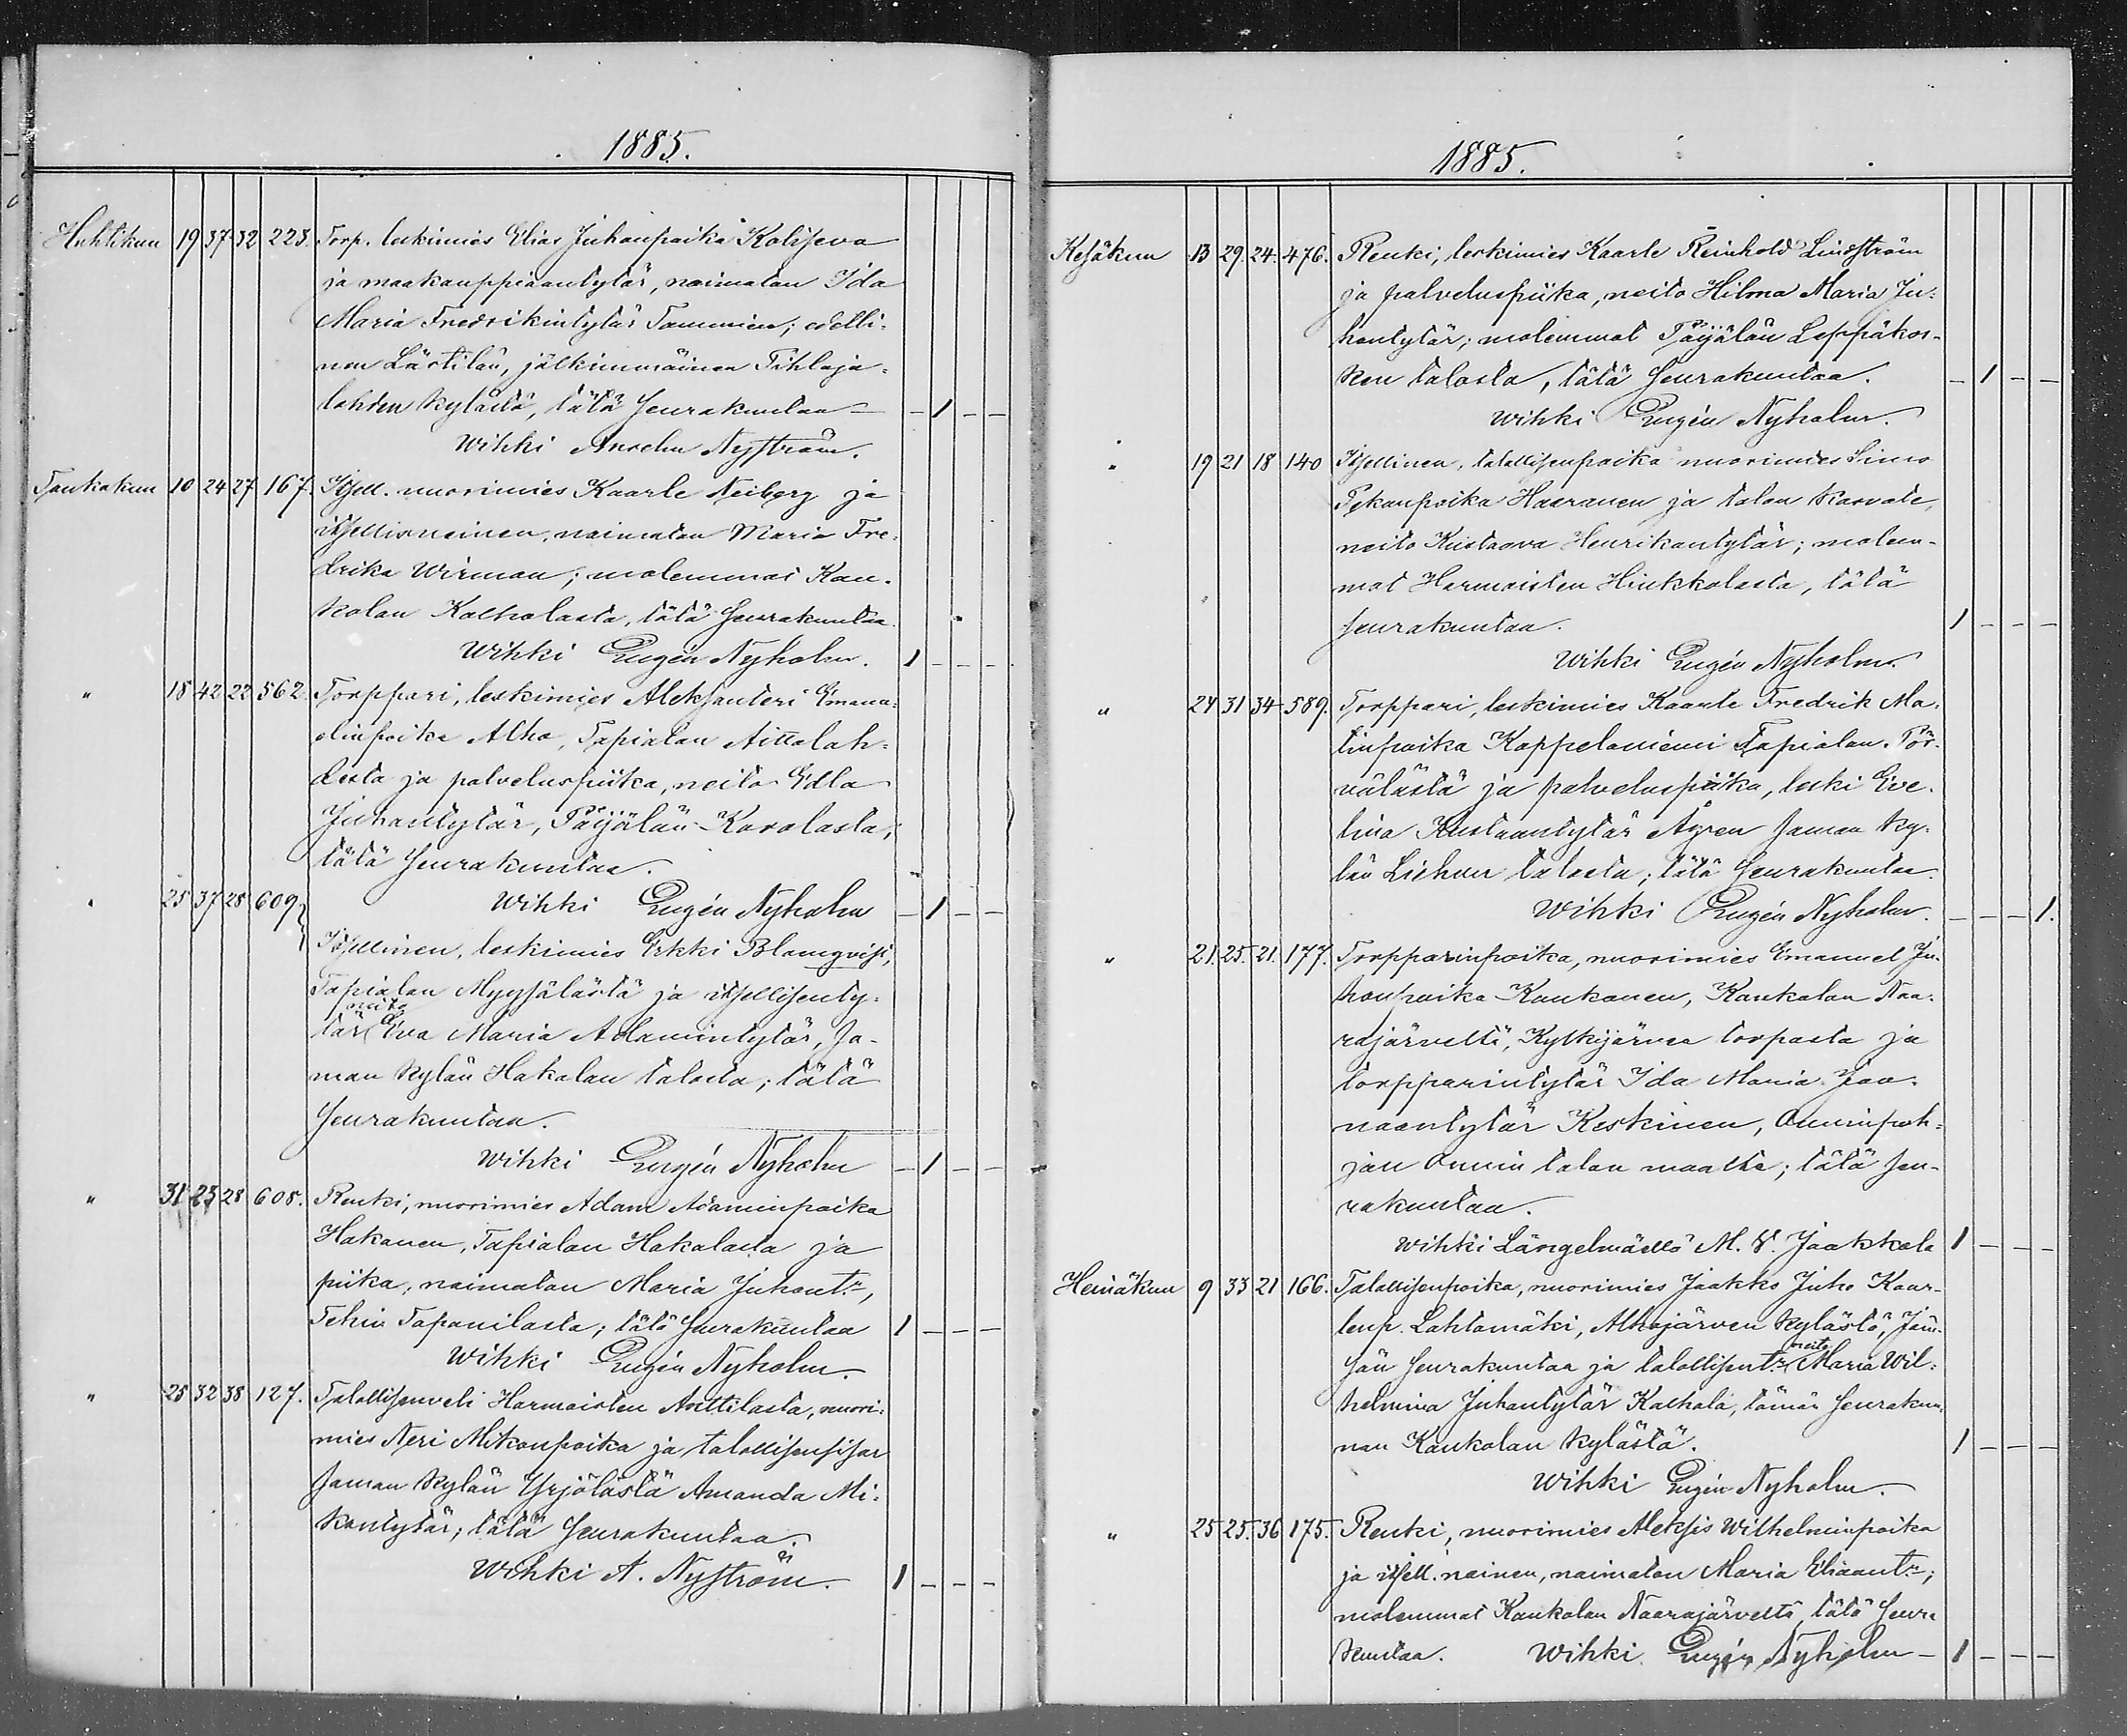 1885.
Huhtikun 19 37 32 223. Torp. leskimies Elias Juhanpoika Kolijeva
ja maakauppiaantytär, naimaton Ida
Maria Fredrikintytär Tamminen; edelli-
nen Lästilän, jälkimmäinen Pihlaja-
lahden kylästä, tätä seurakuntaa – – 1 – –
Wihki Anselm Nyström.
Toukokun 10 24 27 167. Itsell. nuorimies Kaarle Neiberg ja
itsellisnainen, naimaton Maria Fre-
drika Wirman; molemmat Kau-
kolan Kalholasta, tätä seurakuntaa.
Wihki Eugén Nyholm. 1 – – –
" 18 42 22 562. Torppari, leskimies Aleksanteri Emanu-
elinpoika Alho, Tapialan Aittolah-
desta ja palveluspiika, neito Edla
Juhantytär, Päijälän Kavalasta;
tätä seurakuntaa.
Wihki Eugén Nyholm – 1 – –
" 25 37 28 609 Itsellinen, leskimies Erkki Blomqvist,
Tapialan Myysälästä ja itsellisenty-
neito
tär Eva Maria Adamintytär, sa-
man kylän Hakalan talosta; tätä
seurakuntaa.
Wihki Eugén Nyholm – 1 – –
" 31 23 28 608. Renki, nuorimies Adam Adaminpoika
Hakanen, Tapialan Hakalasta ja
piika, naimaton Maria Juhant:r,
Tehin Tapanilasta; tätä seurakuntaa 1 – – –
Wihki Eugén Nyholm.
" 25 32 38 127. Talollisenveli Harmoisten Anttilasta, nuori-
mies Neri Mikonpoika ja talollisensisar
saman kylän Yrjölästä Amanda Mi-
kontytär; tätä seurakuntaa.
Wihki A. Nyström. 1 – – –
1885.
Kesäkun 13 29. 24. 476. Renki, leskimies Kaarle Reinhold Lindström
ja palveluspiika, neito Hilma Maria Ju-
hontytär; molemmat Päijälän Leppäkos-
ken talosta, tätä seurakuntaa. – 1 – –
Wihki Eugén Nyholm.
" 19 21 18 140 Itsellinen, talollisenpoika nuorimies Simo
Haaranen ja talon kasvate,
neito Kustaava Henrikantytär; molem-
mat Harmoisten Hinkkolasta, tätä
seurakuntaa. 1 – – –
Wihki Eugén Nyholm.
" 24 31 34 589. Torppari, leskimies Kaarle Fredrik Ma-
tinpoika Kappelaniemi Tapialan Pör-
välästä ja palveluspiika, leski Eve-
lina Kustaantytär Ågren saman ky-
län Liehun talosta; tätä seurakuntaa.
Wihki Eugén Nyholm. – – – 1.
" 21. 25. 21. 177. Torpparinpoika, nuorimies Emanuel Ju-
honpoika Kaukanen, Kaukolan Naa-
rajärveltä, Kytkijärven torpasta ja
torpparintytär Ida Maria Joo-
naantytär Keskinen, Ouninpoh-
jan Ounin talon maalta; tätä seu-
rakuntaa.
Wihki Längelmäellä M. V. Jaakkola 1 – – –
Heinäkun 9 33 21 166. Talollisenpoika, nuorimies Jaakko Juho Kaar-
lenp. Lahtomäki, Alhojärven kylästä, Jäm-
neito
sän seurakuntaa ja talollisent:r Maria Wil-
helmina Juhantytär Kalhola, tämän seurakun-
nan Kaukolan kylästä. 1 – – –
Wihki Eugén Nyholm.
" 25 25. 36 175. Renki, nuorimies Aleksis Wilhelminpoika
ja itsell. nainen, naimaton Maria Eliaant:r;
molemmat Kaukolan Naarajärveltä, tätä seura
kuntaa. Wihki Eugén Nyholm – 1 – – –